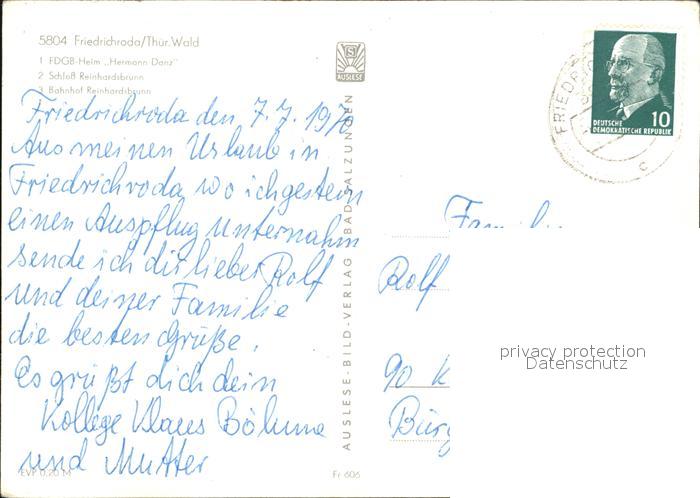 5804 Friedrichroda/Thür. Wald
1 FDGB-Heim „Hermann Danz"
2 Schloß Reinhardsbrunn
3 Bahnhof Reinhardsbrunn
Friedrichroda den 7.7.1970
Aus meinen Urlaub in
Friedrichroda wo ich gestern
einen Auspflug unternahm
sende ich dir lieber Rolf
und deiner Familie
die besten Grüße.
Es grüßt dich dein
Kollege Klaus Böhme
und Mutter
EVP 0,20 M
Fr 606
AUSLESE-BILD-VERLAG BAD SALZUNGEN
AUSLESE
FRIEDRICHRO
c
DEUTSCHE
DEMOKRATISCHE REPUBLIK
10
Familie
Rolf
90 K
Bürg
privacy protection
Datenschutz